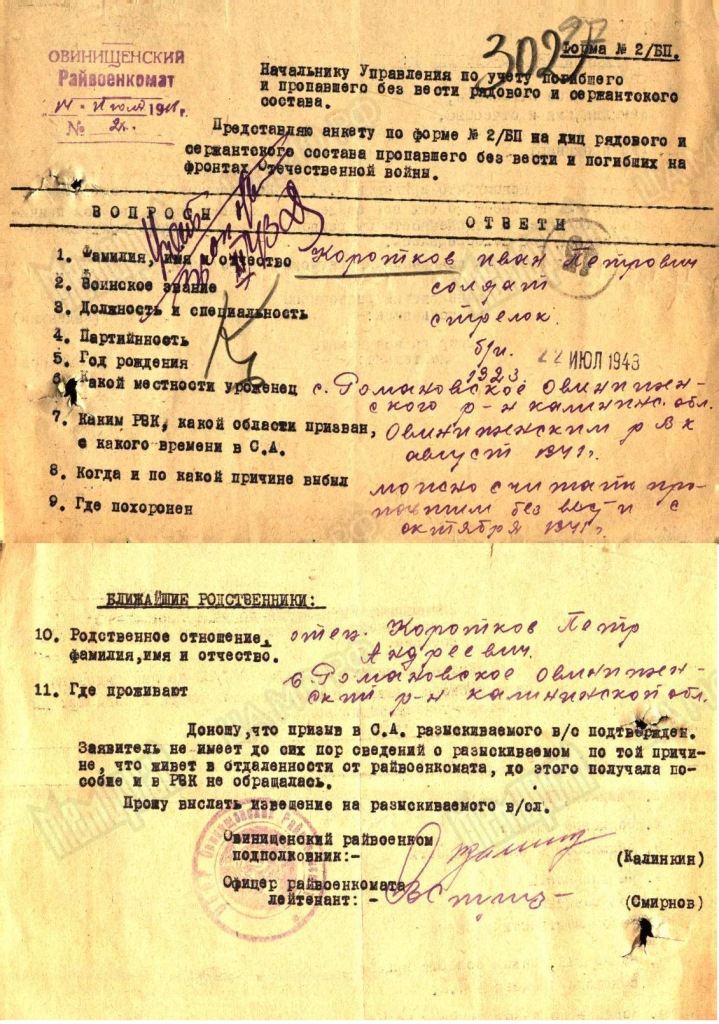 Форма № 2/БП.
ОВИНИЩЕНСКИЙ
Райвоенкомат
№ 2
Начальнику Управления по учету погибшего
и пропавшего без вести рядового и сержантского
состава.
Представляю анкету по форме № 2/БП на лиц рядового и
сержантского состава пропавшего без вести и погибших на
фронтах Отечественной войны.
ВОПРОСЫ ОТВЕТИ
1. Фамилия, имя и отчество Коротков Иван Петрович
2. Воинское звание солдат
3. Должность и специальность стрелок.
4. Партийнность б/п.
5. Год рождения 1923
22 ИЮЛ 1948
6. Какой местности уроженец с. Романовское Овинищен-
ского р-н калининс. обл.
7. Каким РВК, какой области призван, Овинищенским рвк
с какого времени в С.А. август 1941 г.
8. Когда и по какой причине выбыл можно считать про-
9. Где похоронен павшим без вести с
октября 1941 г.
БЛИЖАЙШИЕ РОДСТВЕННИКИ:
10. Родственное отношение, отец. Коротков Петр
фамилия,имя и отчество. Андреевич.
11. Где проживают с Романовское Овинищен-
ский р-н калининской обл.
Доношу,что призыв в С.А. разыскиваемого в/с подтвержден.
Заявитель не имеет до сих пор сведений о разыскиваемом по той причи-
не, что живет в отдаленности от райвоенкомата, до этого получала по-
собие и в РВК не обращалась.
Прошу выслать извещение на разыскиваемого в/сл.
Овинищенский райвоенком
подполковник:- (Калинкин)
Офицер райвоенкомата
лейтенант: - (Смирнов)